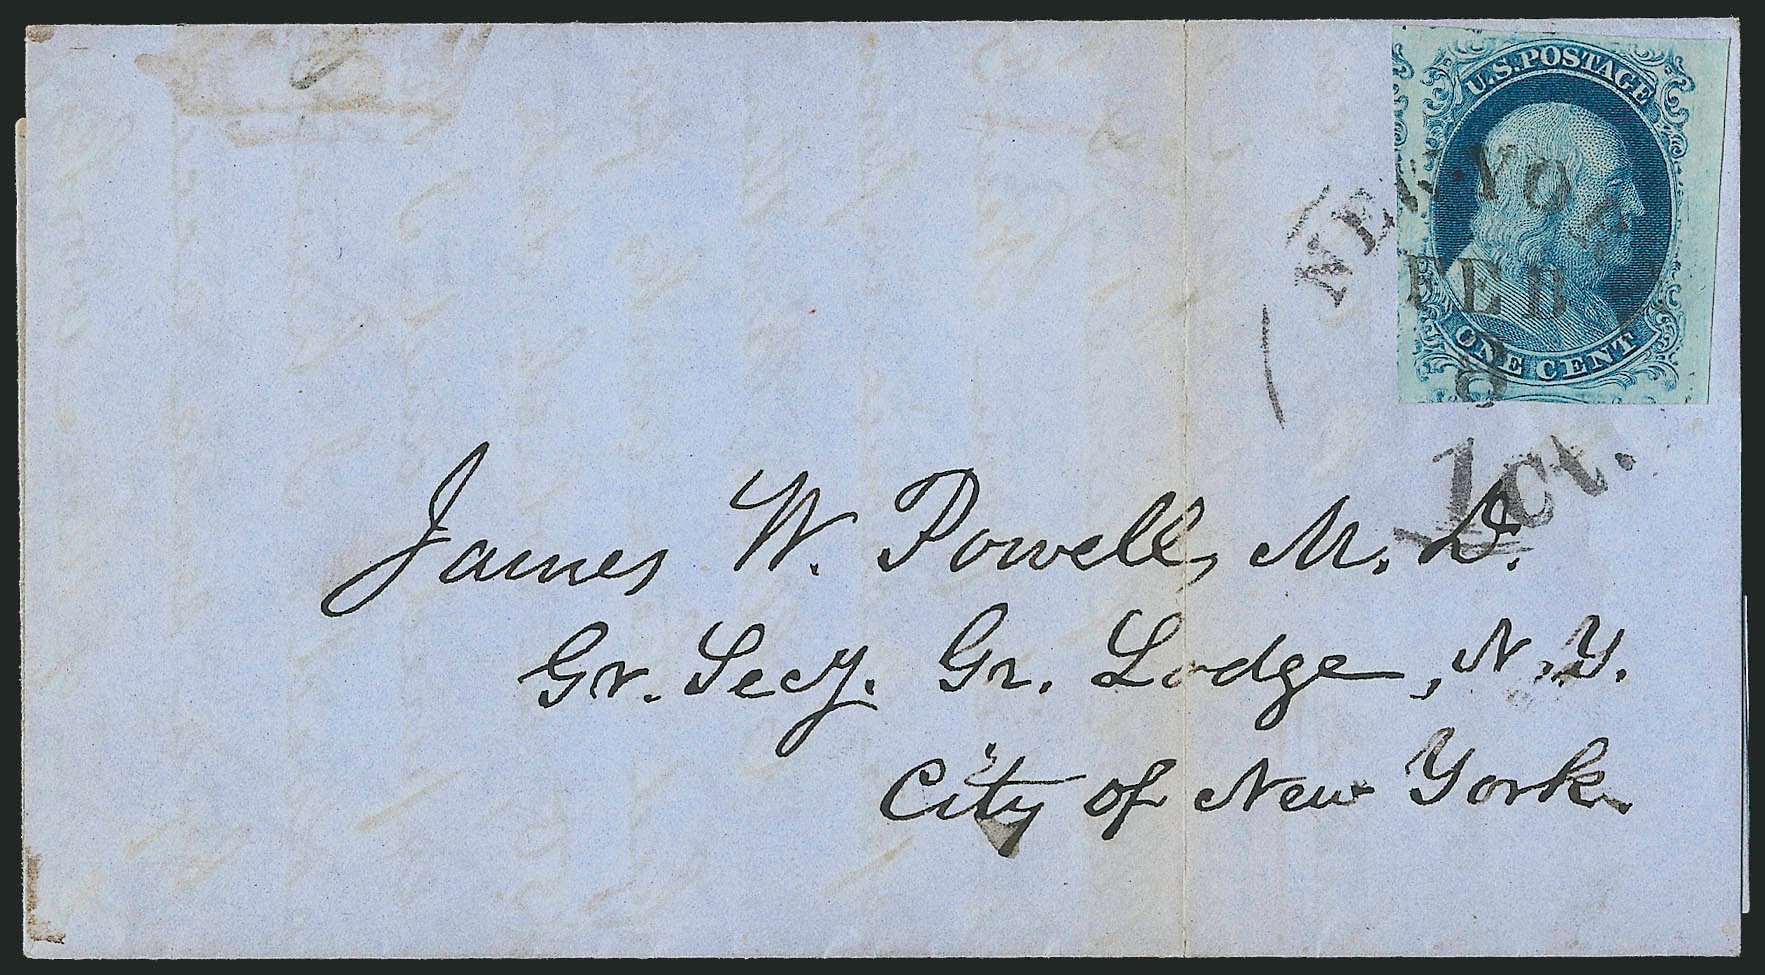 U.S. POSTAGE
NEW-YORK
FEB
8
ONE CENT
1 ct.
James W. Powell, M. D.
Gr. Secy. Gr. Lodge, N. Y.
City of New York.